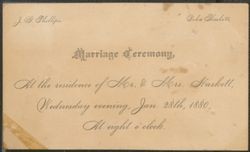 J. B. Phillips
Marriage Ceremony,
At the residence of Mr. & Mrs. Haskett,
Wednesday evening, Jan. 28th, 1880,
At eight o'clock.